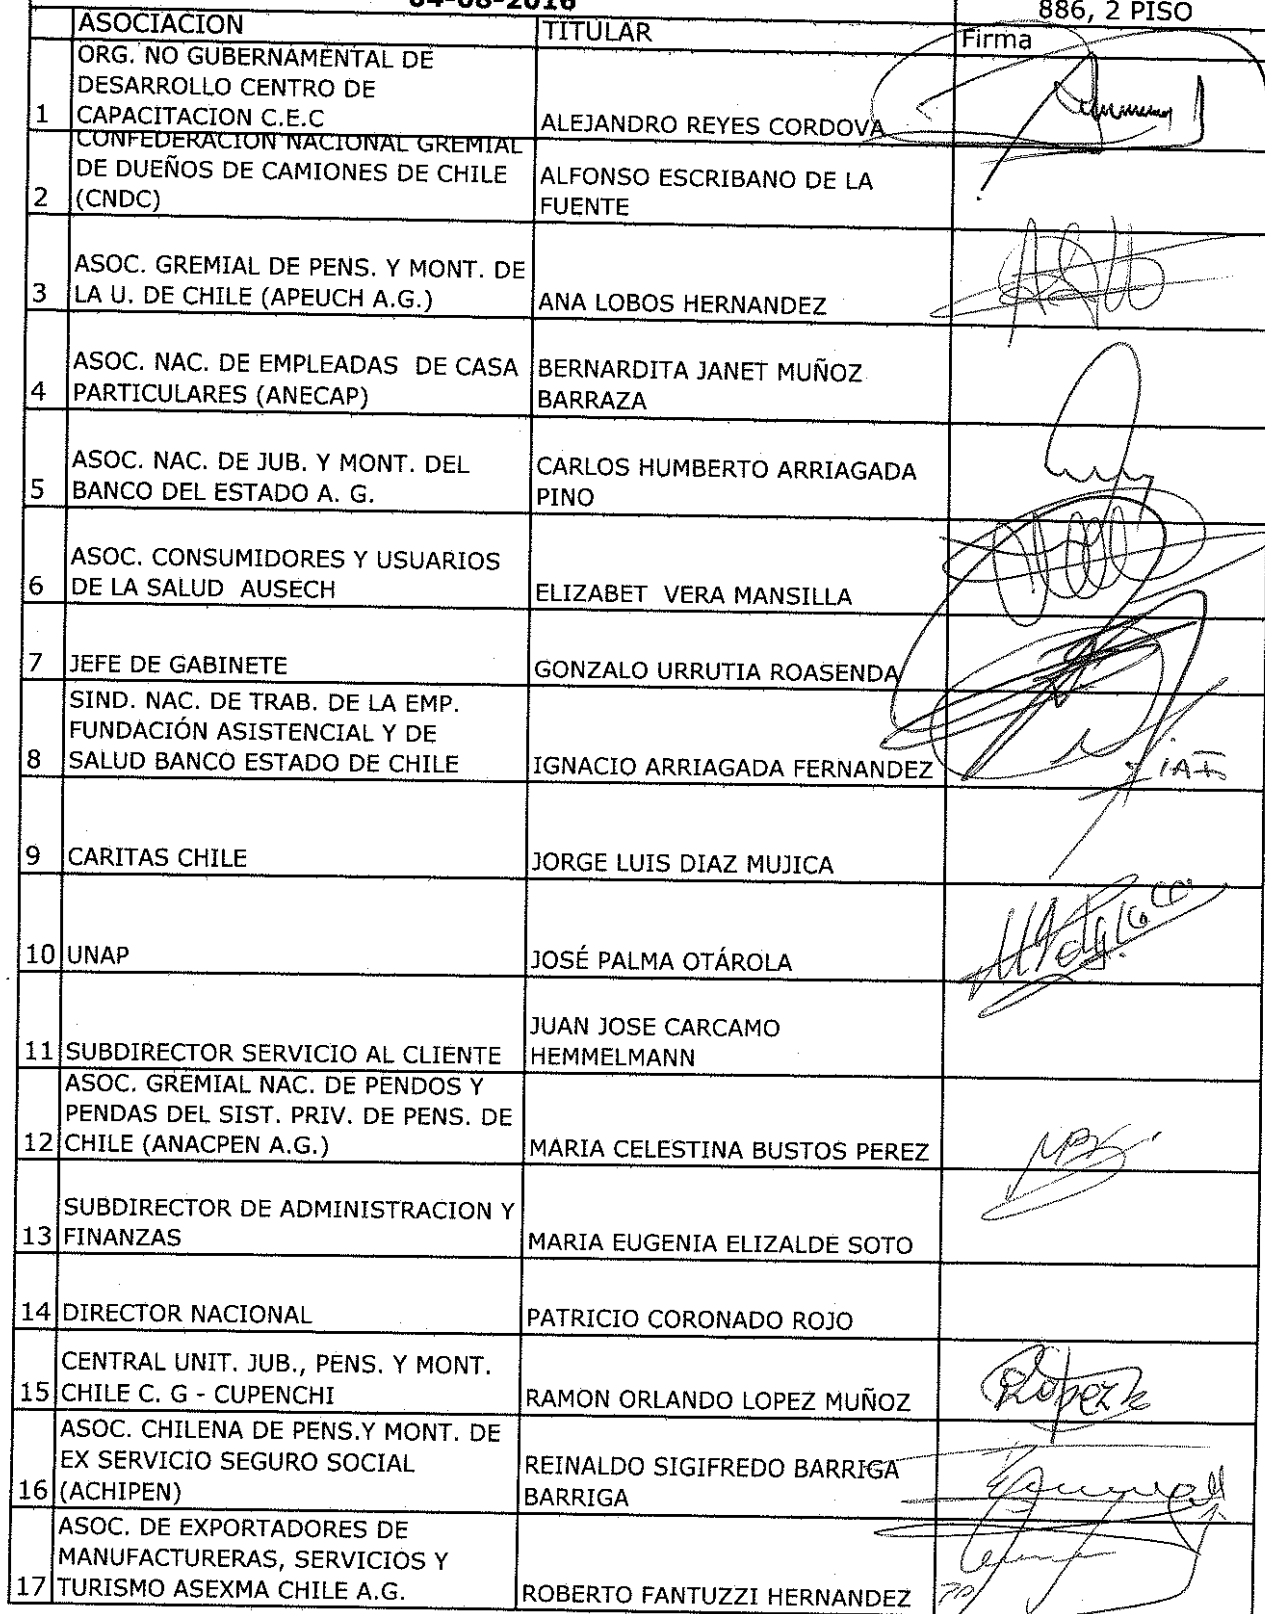 04-08-2016
886, 2 PISO
ASOCIACION TITULAR Firma
ORG. NO GUBERNAMENTAL DE
DESARROLLO CENTRO DE
1 CAPACITACION C.E.C ALEJANDRO REYES CORDOVA
CONFEDERACION NACIONAL GREMIAL
DE DUEÑOS DE CAMIONES DE CHILE ALFONSO ESCRIBANO DE LA
2 (CNDC) FUENTE
ASOC. GREMIAL DE PENS. Y MONT. DE
3 LA U. DE CHILE (APEUCH A.G.) ANA LOBOS HERNANDEZ
ASOC. NAC. DE EMPLEADAS DE CASA BERNARDITA JANET MUÑOZ
4 PARTICULARES (ANECAP) BARRAZA
ASOC. NAC. DE JUB. Y MONT. DEL CARLOS HUMBERTO ARRIAGADA
5 BANCO DEL ESTADO A. G. PINO
ASOC. CONSUMIDORES Y USUARIOS
6 DE LA SALUD AUSECH ELIZABET VERA MANSILLA
7 JEFE DE GABINETE GONZALO URRUTIA ROASENDA
SIND. NAC. DE TRAB. DE LA EMP.
FUNDACIÓN ASISTENCIAL Y DE
8 SALUD BANCO ESTADO DE CHILE IGNACIO ARRIAGADA FERNANDEZ
9 CARITAS CHILE JORGE LUIS DIAZ MUJICA
10 UNAP JOSÉ PALMA OTÁROLA
JUAN JOSE CARCAMO
11 SUBDIRECTOR SERVICIO AL CLIENTE HEMMELMANN
ASOC. GREMIAL NAC. DE PENDOS Y
PENDAS DEL SIST. PRIV. DE PENS. DE
12 CHILE (ANACPEN A.G.) MARIA CELESTINA BUSTOS PEREZ
SUBDIRECTOR DE ADMINISTRACION Y
13 FINANZAS MARIA EUGENIA ELIZALDE SOTO
14 DIRECTOR NACIONAL PATRICIO CORONADO ROJO
CENTRAL UNIT. JUB., PENS. Y MONT.
15 CHILE C. G - CUPENCHI RAMON ORLANDO LOPEZ MUÑOZ
ASOC. CHILENA DE PENS.Y MONT. DE
EX SERVICIO SEGURO SOCIAL REINALDO SIGIFREDO BARRIGA
16 (ACHIPEN) BARRIGA
ASOC. DE EXPORTADORES DE
MANUFACTURERAS, SERVICIOS Y
17 TURISMO ASEXMA CHILE A.G. ROBERTO FANTUZZI HERNANDEZ